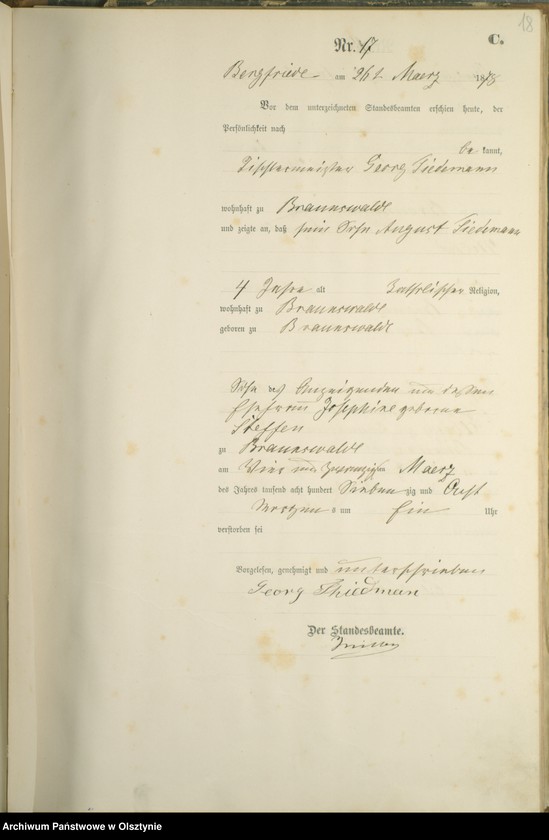 18
C.
Nr. 17
Bergfriede am 26 t Maerz 1878
Vor dem unterzeichneten Standesbeamten erschien heute, der
Persönlichkeit nach
be kannt,
Tischlermeister Georg Tiedemann
wohnhaft zu Braunswalde
und zeigte an, daß sein Sohn August Tiedemann
4 Jahre alt Katholischer Religion,
wohnhaft zu Braunswalde
geboren zu Braunswalde
Sohn des Anzeigenden und dessen
Ehefrau Josephine geborene
Steffen
zu Braunswalde
am Vier und zwanzigsten Maerz
des Jahres tausend acht hundert Sieben zig und Acht
um Ein Uhr
verstorben sei
Vorgelesen, genehmigt und unterschrieben
Georg Thiedman
Der Standesbeamte.
Archiwum Państwowe w Olsztynie